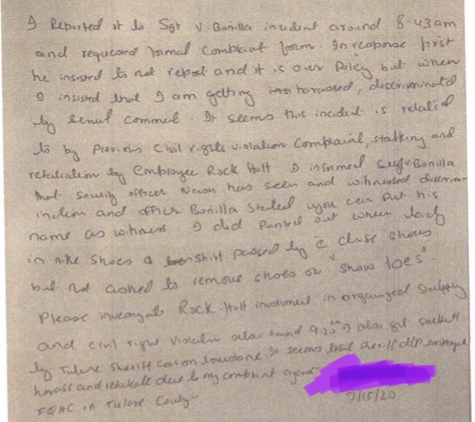 I Reported it to Sgt V. Bonilla incident around 8:43am
and requested formal Complaint form. In response first
he insisted to not report and it is our Policy but when
I insisted that I am getting harassed, discriminated
by sexual comment. It seems this incident is related
to by Previous Civil rights violation Complaint, stalking and
retaliation by Employee Rock Holt I informed Bonilla
that security officer has seen and witnessed discrim-
ination and officer Bonilla stated you can put his
name as witness I did Pointed out when lady
in nike shoes & shirt passed by c close shoes
but not asked to remove shoes or "show toes".
Please investigate Rock-Holt involvement in organized
and civil right violation also around 9:20 I also got
by Tulare Sheriff car on It seems that sheriff
harass and retaliate due to my complaint against
FQHC in Tulare County-
7/15/20